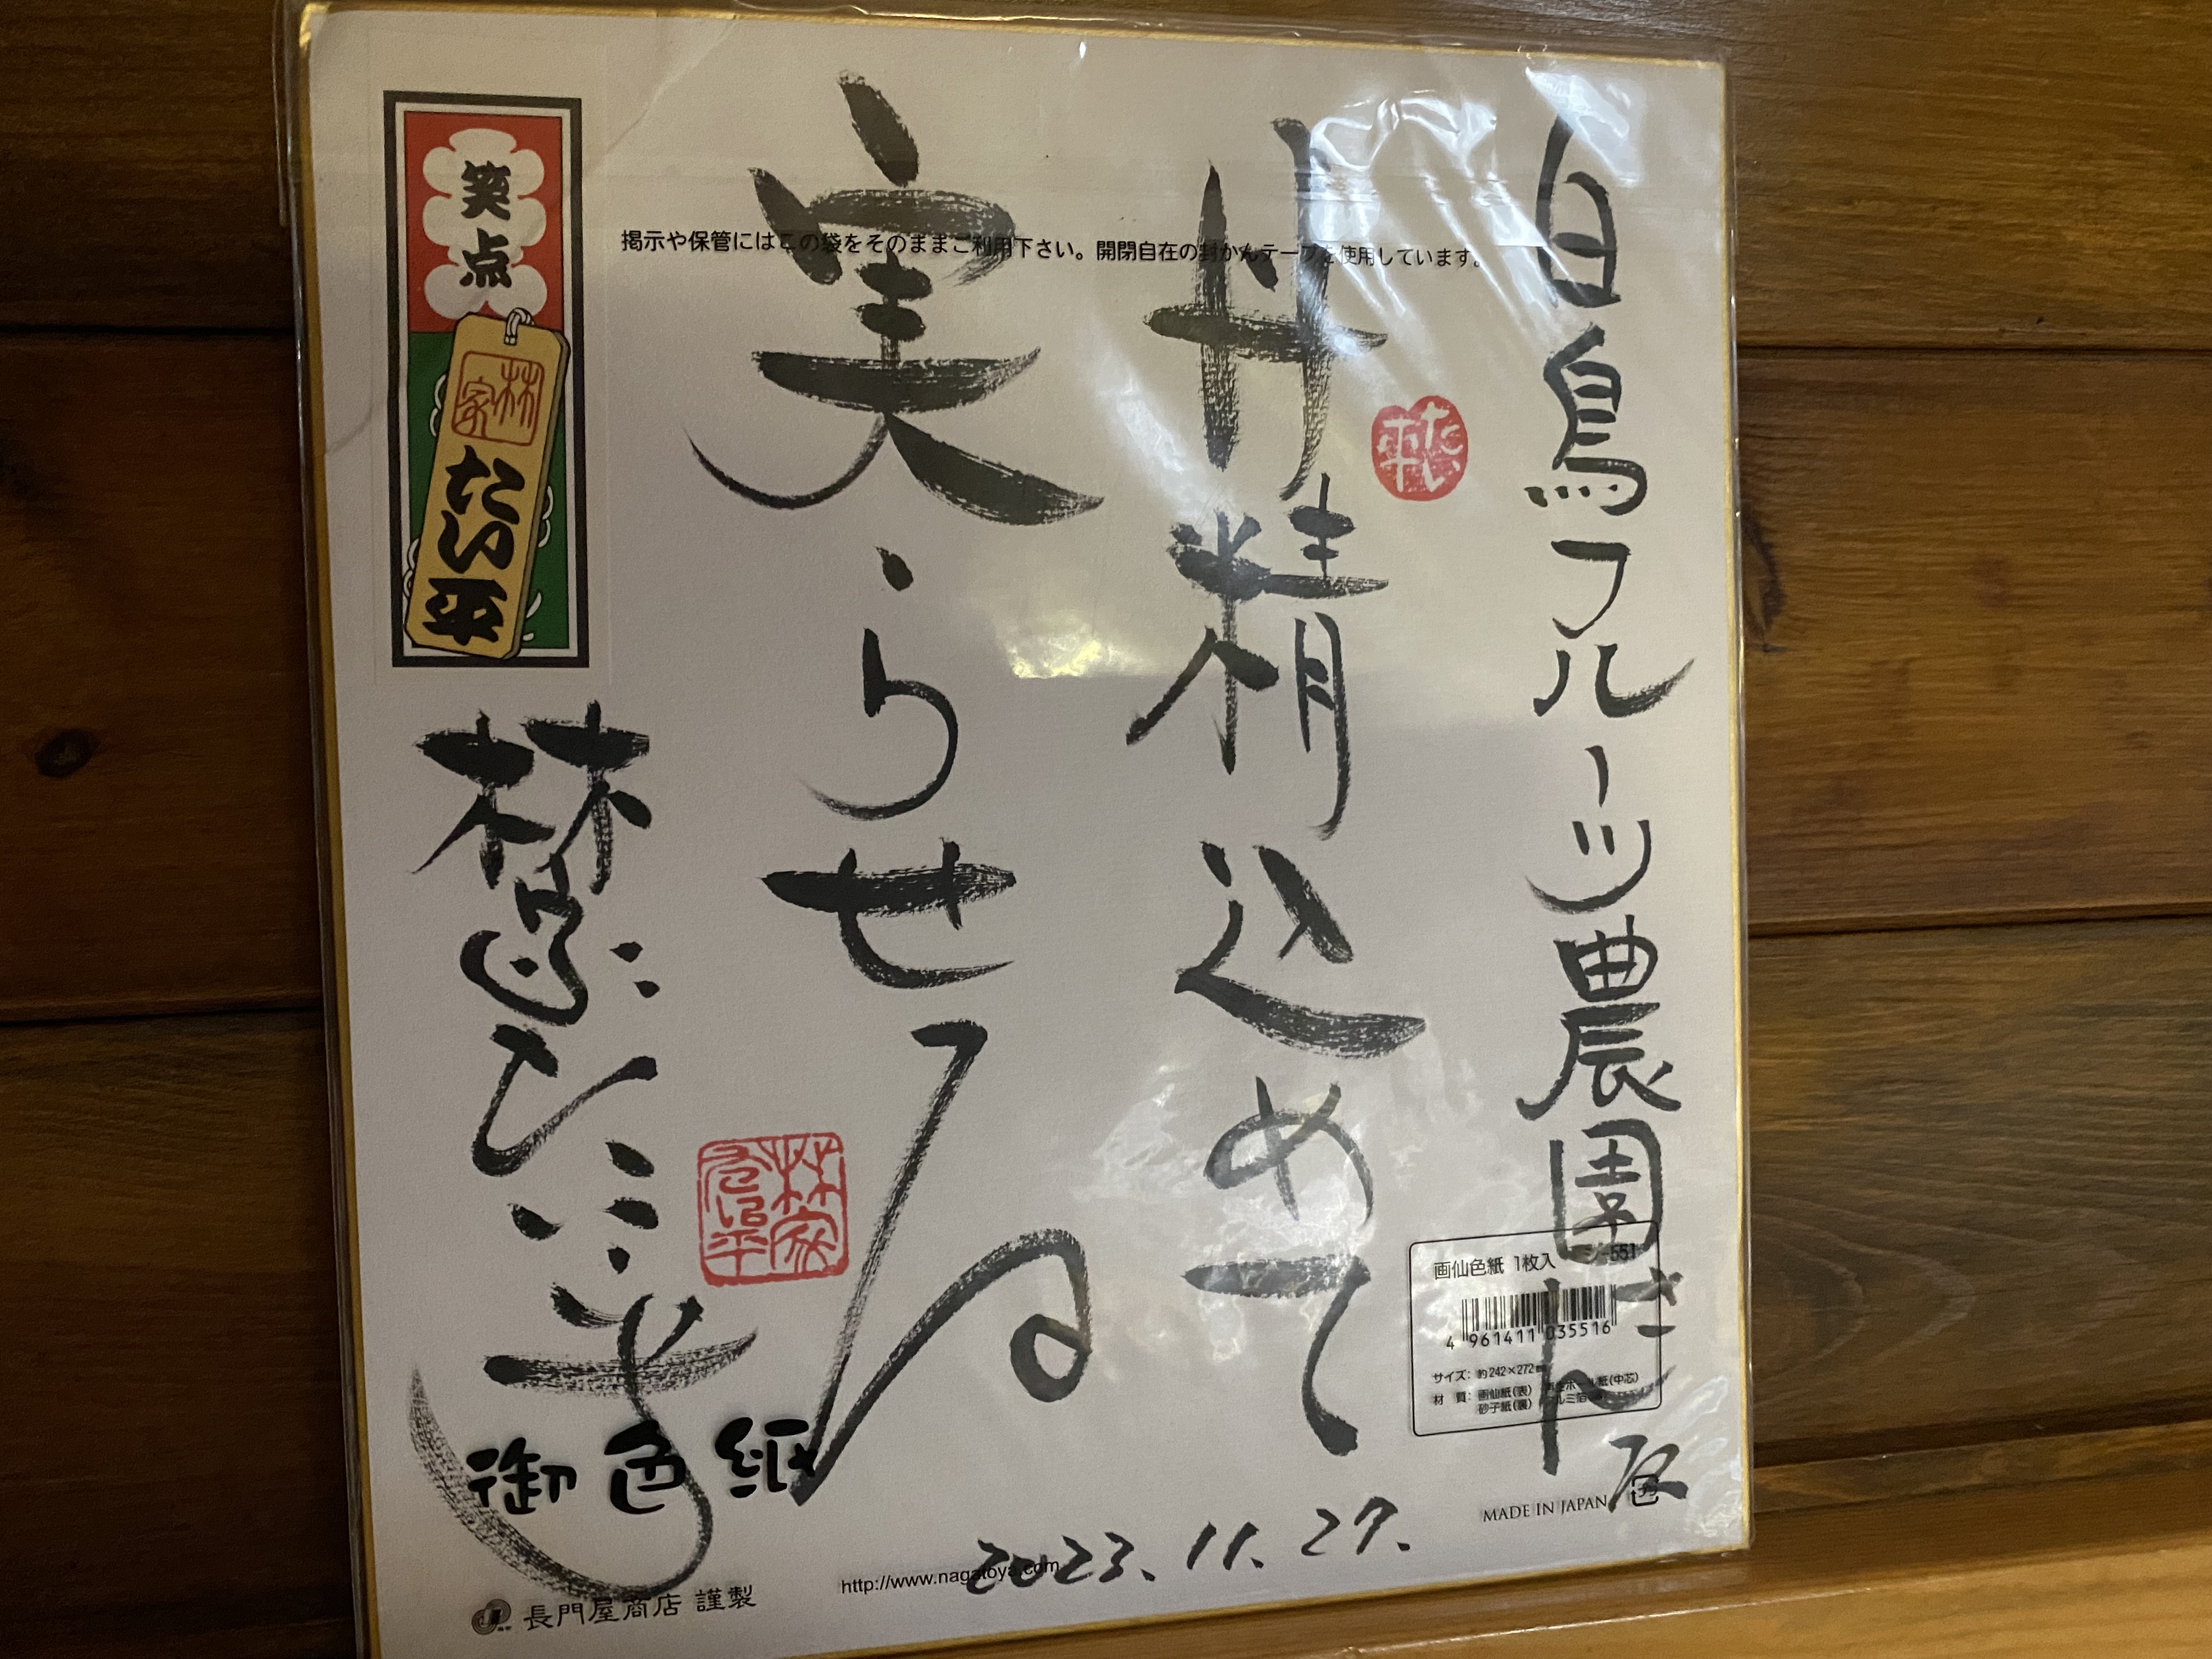 白鳥フルーツ農園さん江
丹精込めて
実らせる
林家たい平
2023.11.27.
笑点
林家
たい平
たい平
林家たい平
掲示や保管にはこの袋をそのままご利用下さい。開閉自在の封かんテープを使用しています。
画仙色紙 1枚入 シ-551
4 961411 035516
サイズ：約242×272㎜
材 質：画仙紙(表)
紙(中芯)
砂子紙(裏)
MADE IN JAPAN
御色紙
http://www.nagatoya.com
長門屋商店 謹製